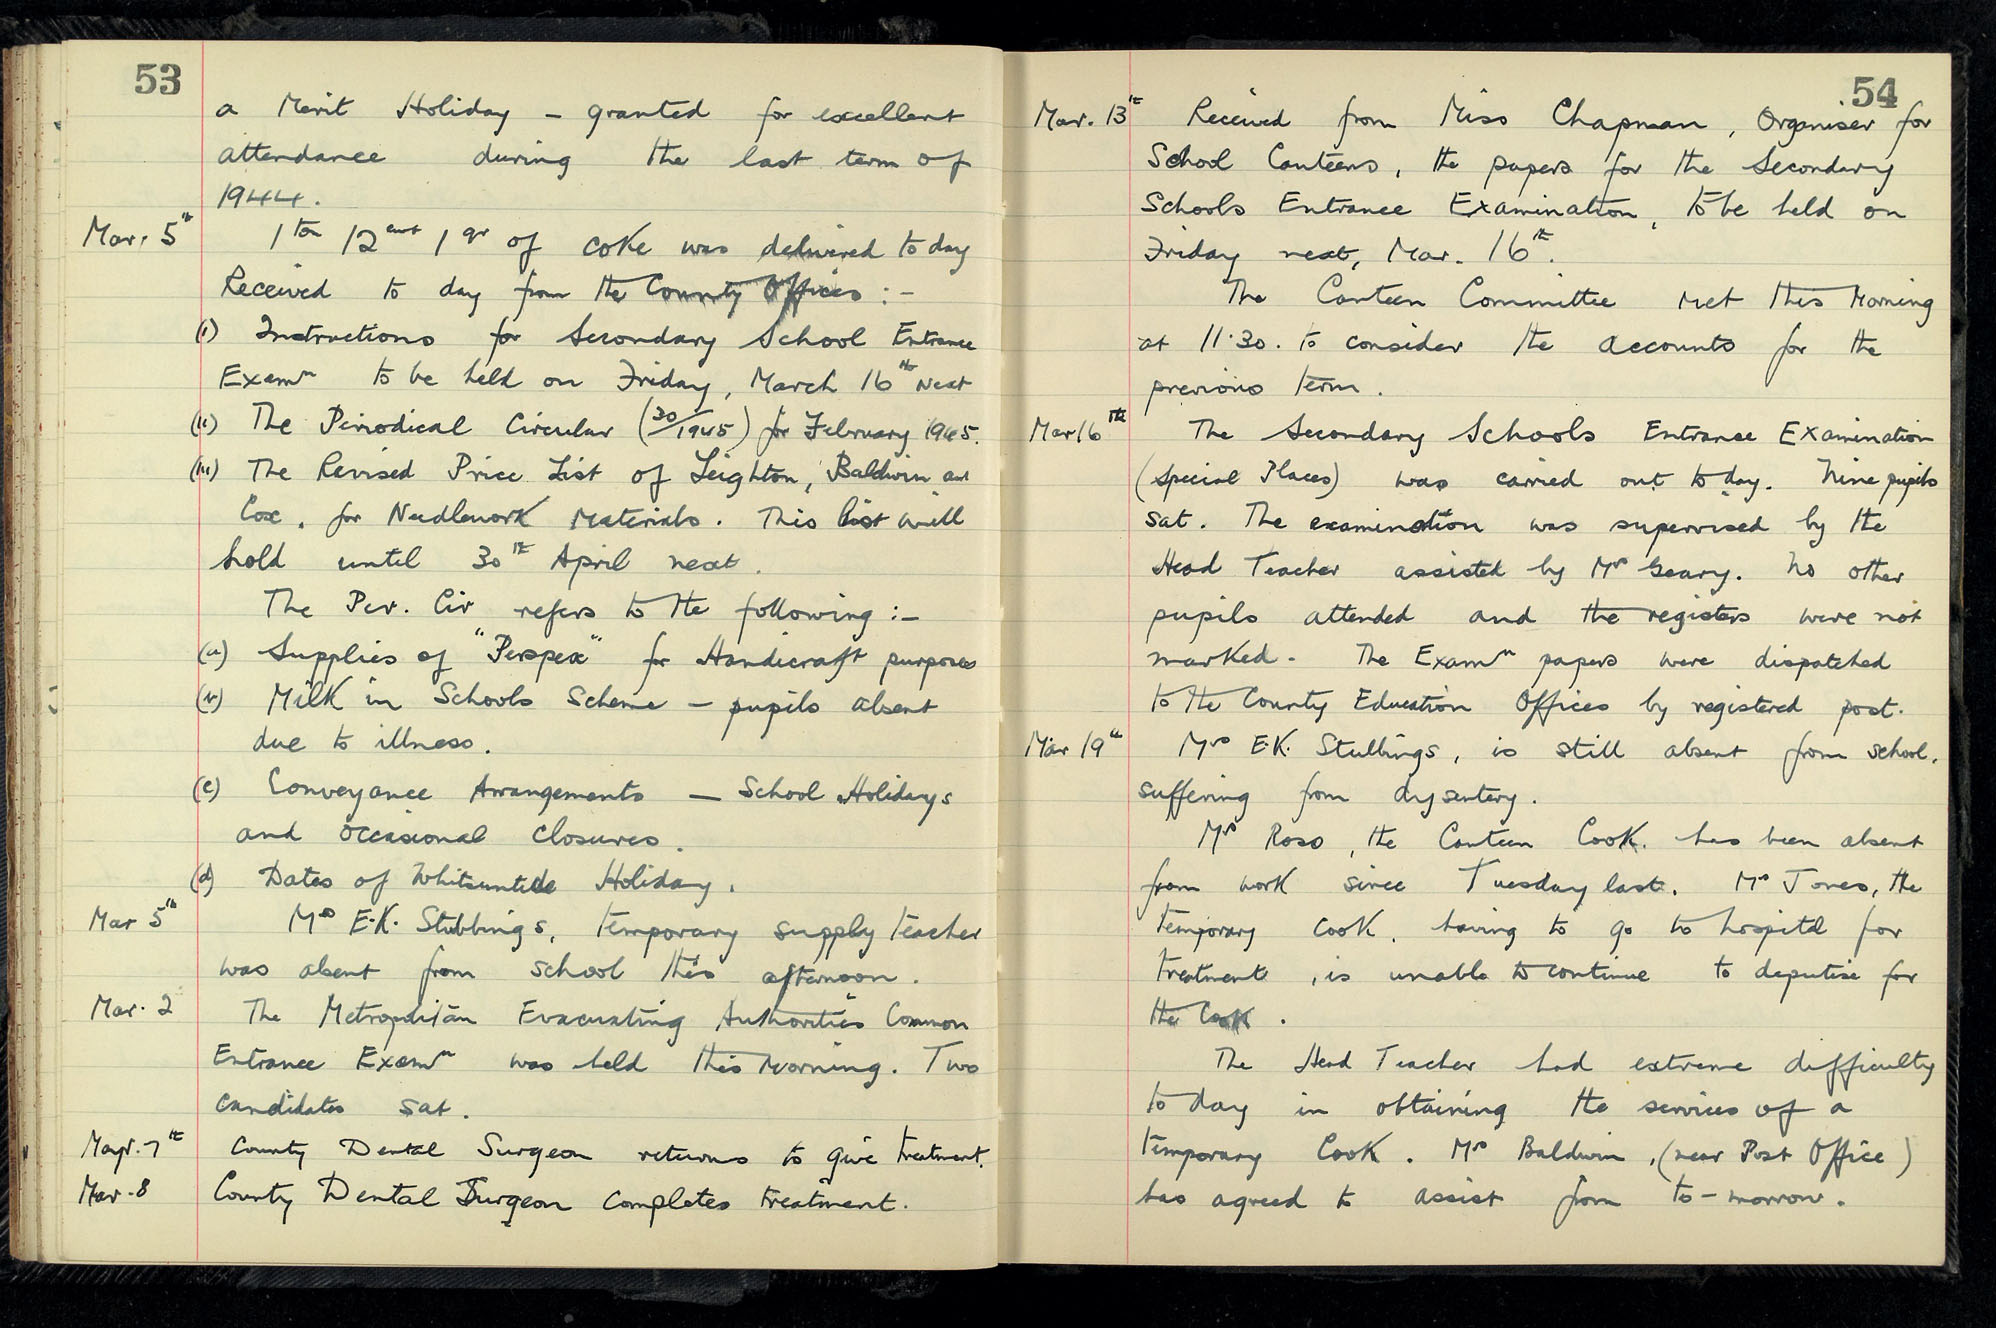 53
a Merit Holiday – granted for excellent
attendance during the last term of
1944.
Mar. 5th 1 ton 12 cwt 1 qr of coke was delivered to day
Received to day from the County Offices :-
(i) Instructions for Secondary School Entrance
Examn to be held on Friday, March 16th next
(ii) The Periodical Circular (30/1945) for February 1945.
(iii) The Revised Price List of Leighton, Baldwin and
Cox, for Needlework Materials. This list will
hold until 30th April next.
The Per. Cir refers to the following :-
(a) Supplies of "Perspex" for Handicraft purposes
(b) Milk in Schools Scheme – pupils absent
due to illness.
(c) Conveyance Arrangements – School Holidays
and occasional closures.
(d) Dates of Whitsuntide Holiday.
Mar 5th Mrs E.K. Stubbings, temporary supply teacher
was absent from school this afternoon.
Mar. 2 The Metropolitan Evacuating Authorities Common
Entrance Examn was held this morning. Two
candidates sat.
Mar. 7th County Dental Surgeon returns to give treatment.
Mar. 8 County Dental Surgeon completes treatment.
54
Mar. 13th Received from Miss Chapman, Organiser for
School Canteens, the papers for the Secondary
Schools Entrance Examination, to be held on
Friday next, Mar. 16th.
The Canteen Committee met this morning
at 11.30. to consider the accounts for the
previous term.
Mar 16th The Secondary Schools Entrance Examination
(Special Places) was carried out to day. Nine pupils
sat. The examination was supervised by the
Head Teacher assisted by Mrs Geary. No other
pupils attended and the registers were not
marked. The Examn papers were dispatched
to the County Education Offices by registered post.
Mar 19th Mrs E.K. Stubbings, is still absent from school,
suffering from dysentery.
Mrs Ross, the Canteen Cook. has been absent
from work since Tuesday last. Mrs Jones, the
temporary cook, having to go to hospital for
treatment, is unable to continue to deputise for
the Cook.
The Head Teacher had extreme difficulty
to day in obtaining the services of a
temporary Cook. Mrs Baldwin, (near Post Office)
has agreed to assist from to-morrow.